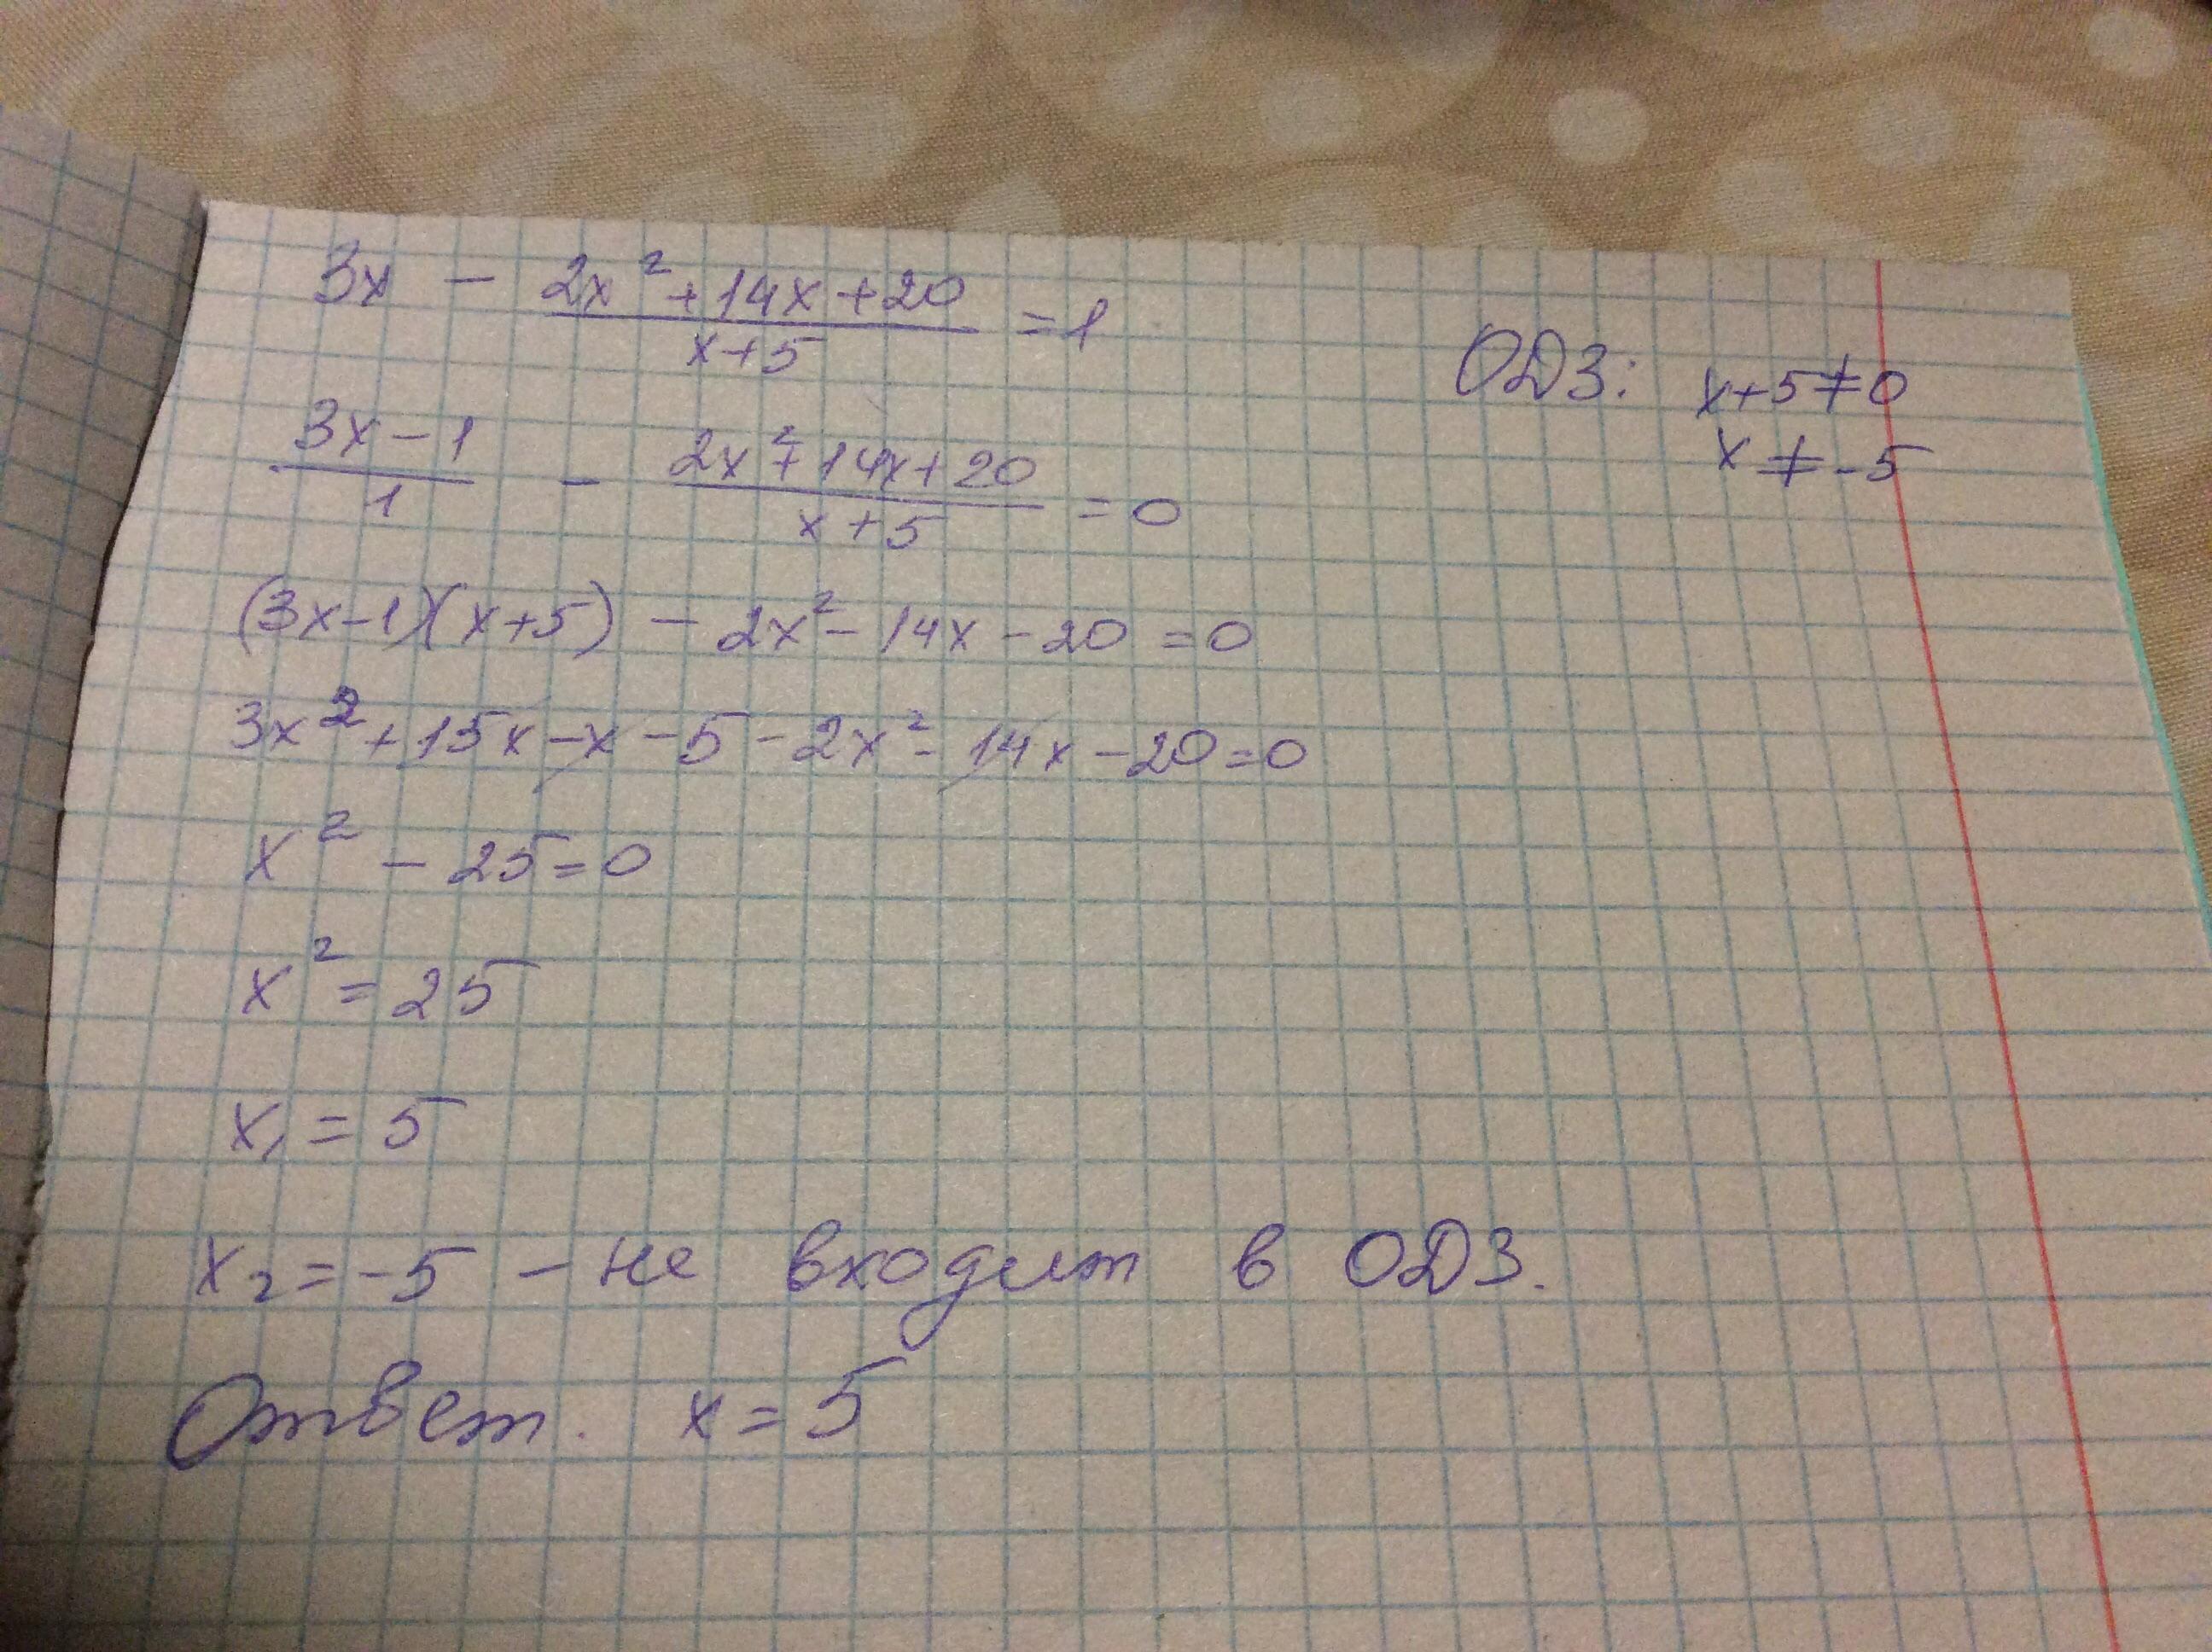 3x - (2x² + 14x + 20)/(x+5) = 1
ОДЗ: x+5≠0
x ≠ -5
(3x-1)/1 - (2x² + 14x + 20)/(x+5) = 0
(3x-1)(x+5) - 2x² - 14x - 20 = 0
3x² + 15x - x - 5 - 2x² - 14x - 20 = 0
x² - 25 = 0
x² = 25
x₁ = 5
x₂ = -5 - не входит в ОДЗ.
Ответ. x = 5